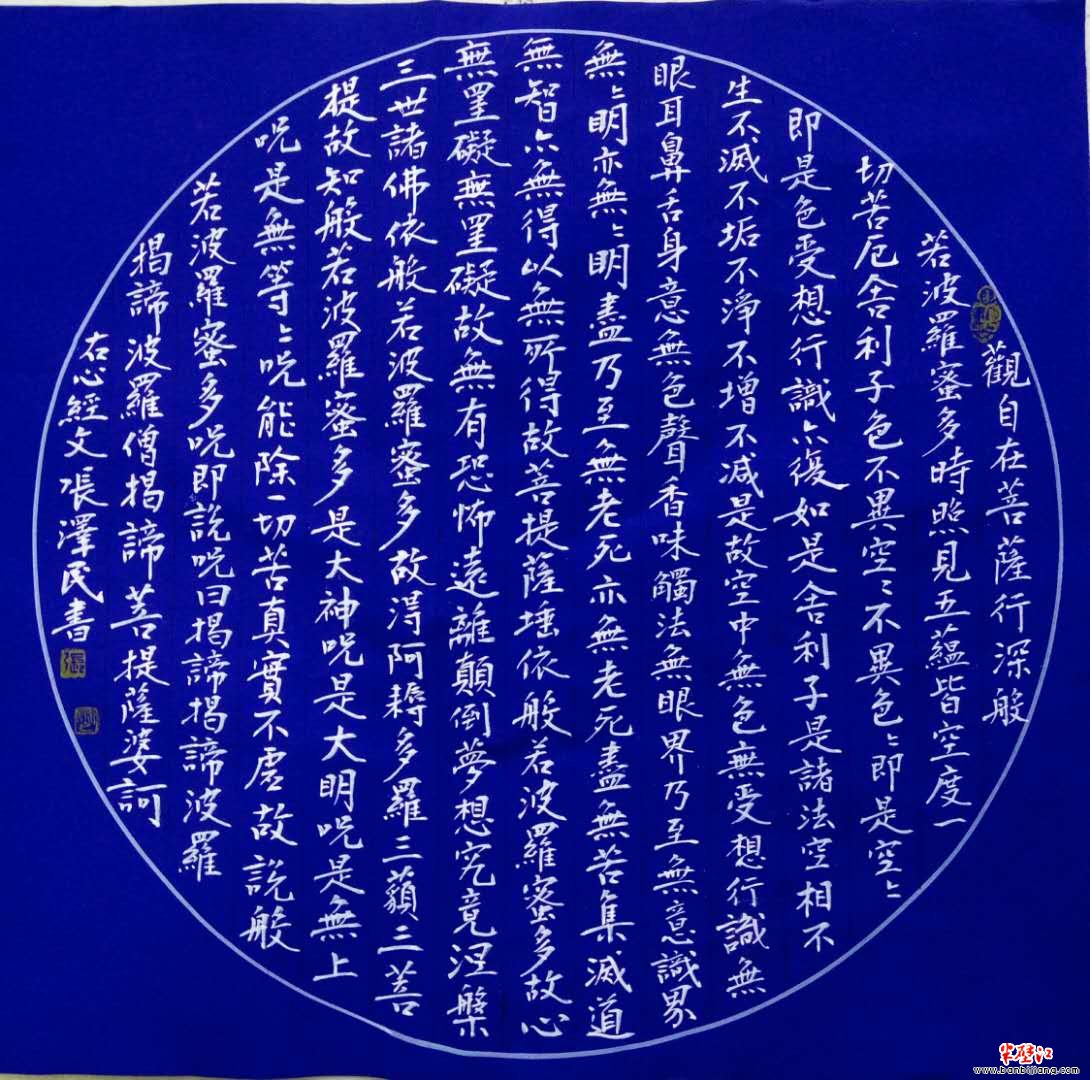 觀自在菩薩行深般
若波羅蜜多時照見五蘊皆空度一
切苦厄舍利子色不異空〻不異色〻即是空〻
即是色受想行識亦復如是舍利子是諸法空相不
生不滅不垢不淨不增不減是故空中無色無受想行識無
眼耳鼻舌身意無色聲香味觸法無眼界乃至無意識界
無〻明亦無〻明盡乃至無老死亦無老死盡無苦集滅道
無智亦無得以無所得故菩提薩埵依般若波羅蜜多故心
無罣礙無罣礙故無有恐怖遠離顛倒夢想究竟涅槃
三世諸佛依般若波羅蜜多故得阿耨多羅三藐三菩
提故知般若波羅蜜多是大神呪是大明呪是無上
呪是無等〻呪能除一切苦真實不虛故說般
若波羅蜜多呪即說呪曰揭諦揭諦波羅
揭諦波羅僧揭諦菩提薩婆訶
右心經文張澤民書
張
半壁江
www.banbijiang.com